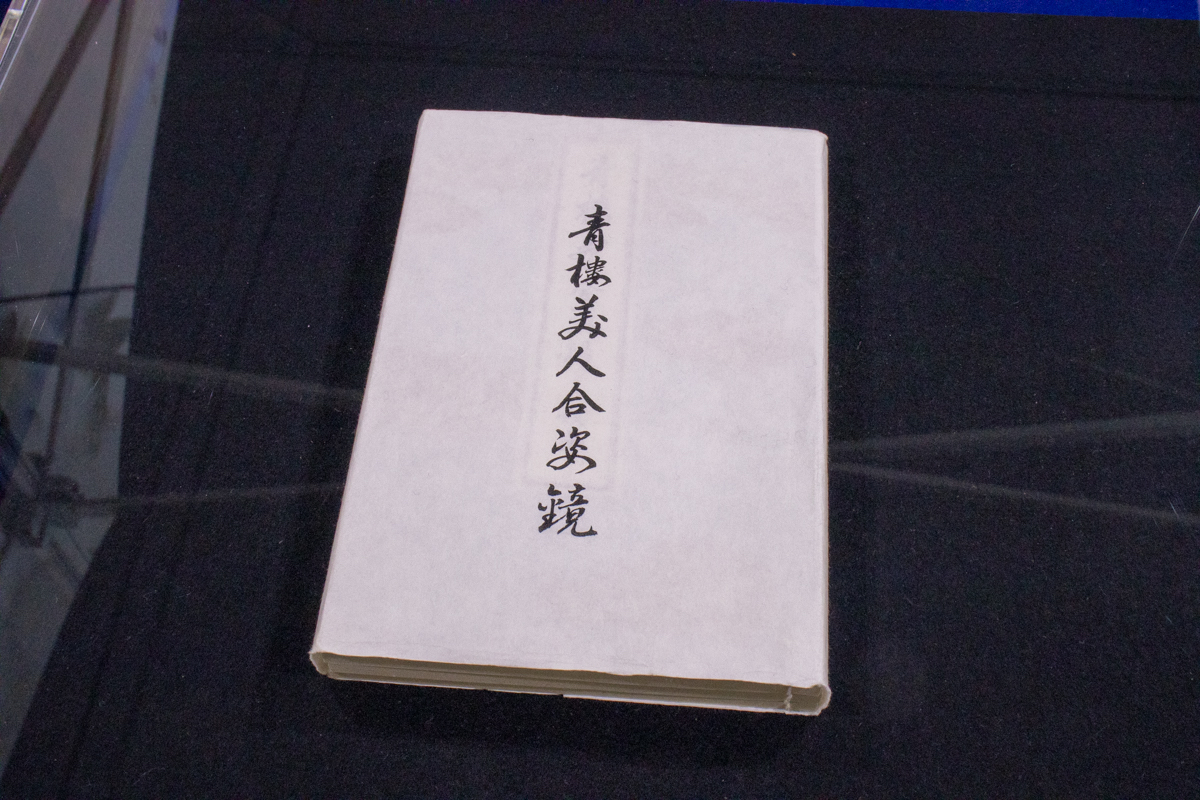 青楼美人合姿鏡